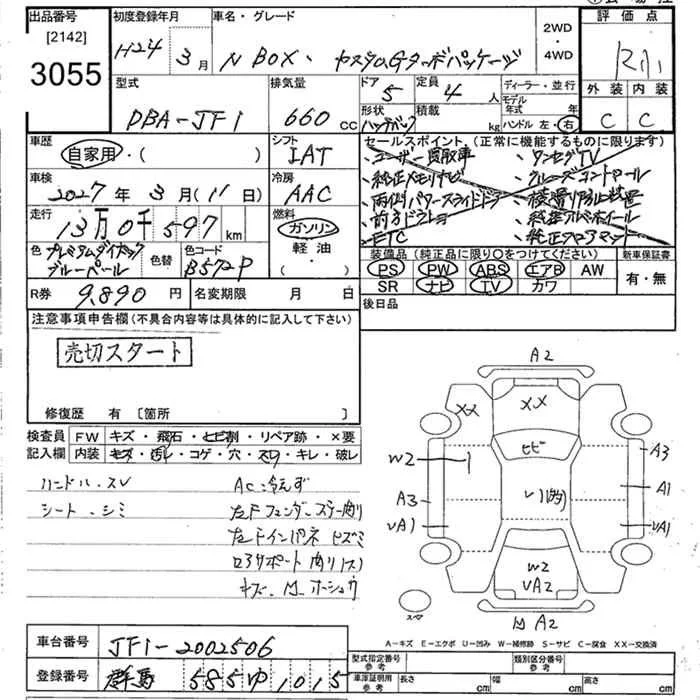 出品番号
[2142]
3055
初度登録年月
H24年 3月
車名・グレード
N BOX、カスタムGターボパッケージ
2WD
・
4WD
評価点
外装 内装
C C
型式
DBA-JF1
排気量
660 cc
ドア
5
定員
4 人
形状
ハッチバック
積載
kg
ディーラー・並行
モデル年式 年
ハンドル 左・右
車歴
自家用・( )
シフト
IAT
セールスポイント(正常に機能するものに限ります)
・ユーザー買取車 ・ワンセグTV
・純正メモリナビ ・クルーズコントロール
・両側パワースライドドア
・純正アルミホイール
・ETC ・純正フロアマット
車検
2027年 3月(11日)
冷房
AAC
走行
13万0千597 km
燃料
ガソリン
・
軽油
色
プレミアムダイナミック
ブルーパール
色替
色コード
B572P
装備品(純正品に限り○をつけてください)
PS PW ABS エアB AW
SR ナビ TV カワ
新車保証書
有・無
R券
9,890 円
名変期限 月 日
後日品
注意事項申告欄(不具合内容等は具体的に記入して下さい)
売切スタート
修復歴 有 [箇所 ]
検査員
記入欄
FW キズ・飛石・ヒビ割・リペア跡・×要
内装 キズ・汚レ・コゲ・穴・スリ・キレ・破レ
ハンドル・スレ AC冷えず
シート・シミ 左Fフェンダーステー曲り
左Fインパネ ヒズミ
コアサポート曲り
A2
XX XX
ヒビ
W2 A3
A3 A1
VA1 VA1
W2
VA2
A2
A-キズ E-エクボ U-凹み W-補修跡 S-サビ C-腐食 XX-交換済
車台番号
JF1-2002506
登録番号
群馬 585 ゆ 1015
型式指定番号
参考
類別区分番号
参考
車庫証明用
参考
長さ cm 幅 cm 高さ cm